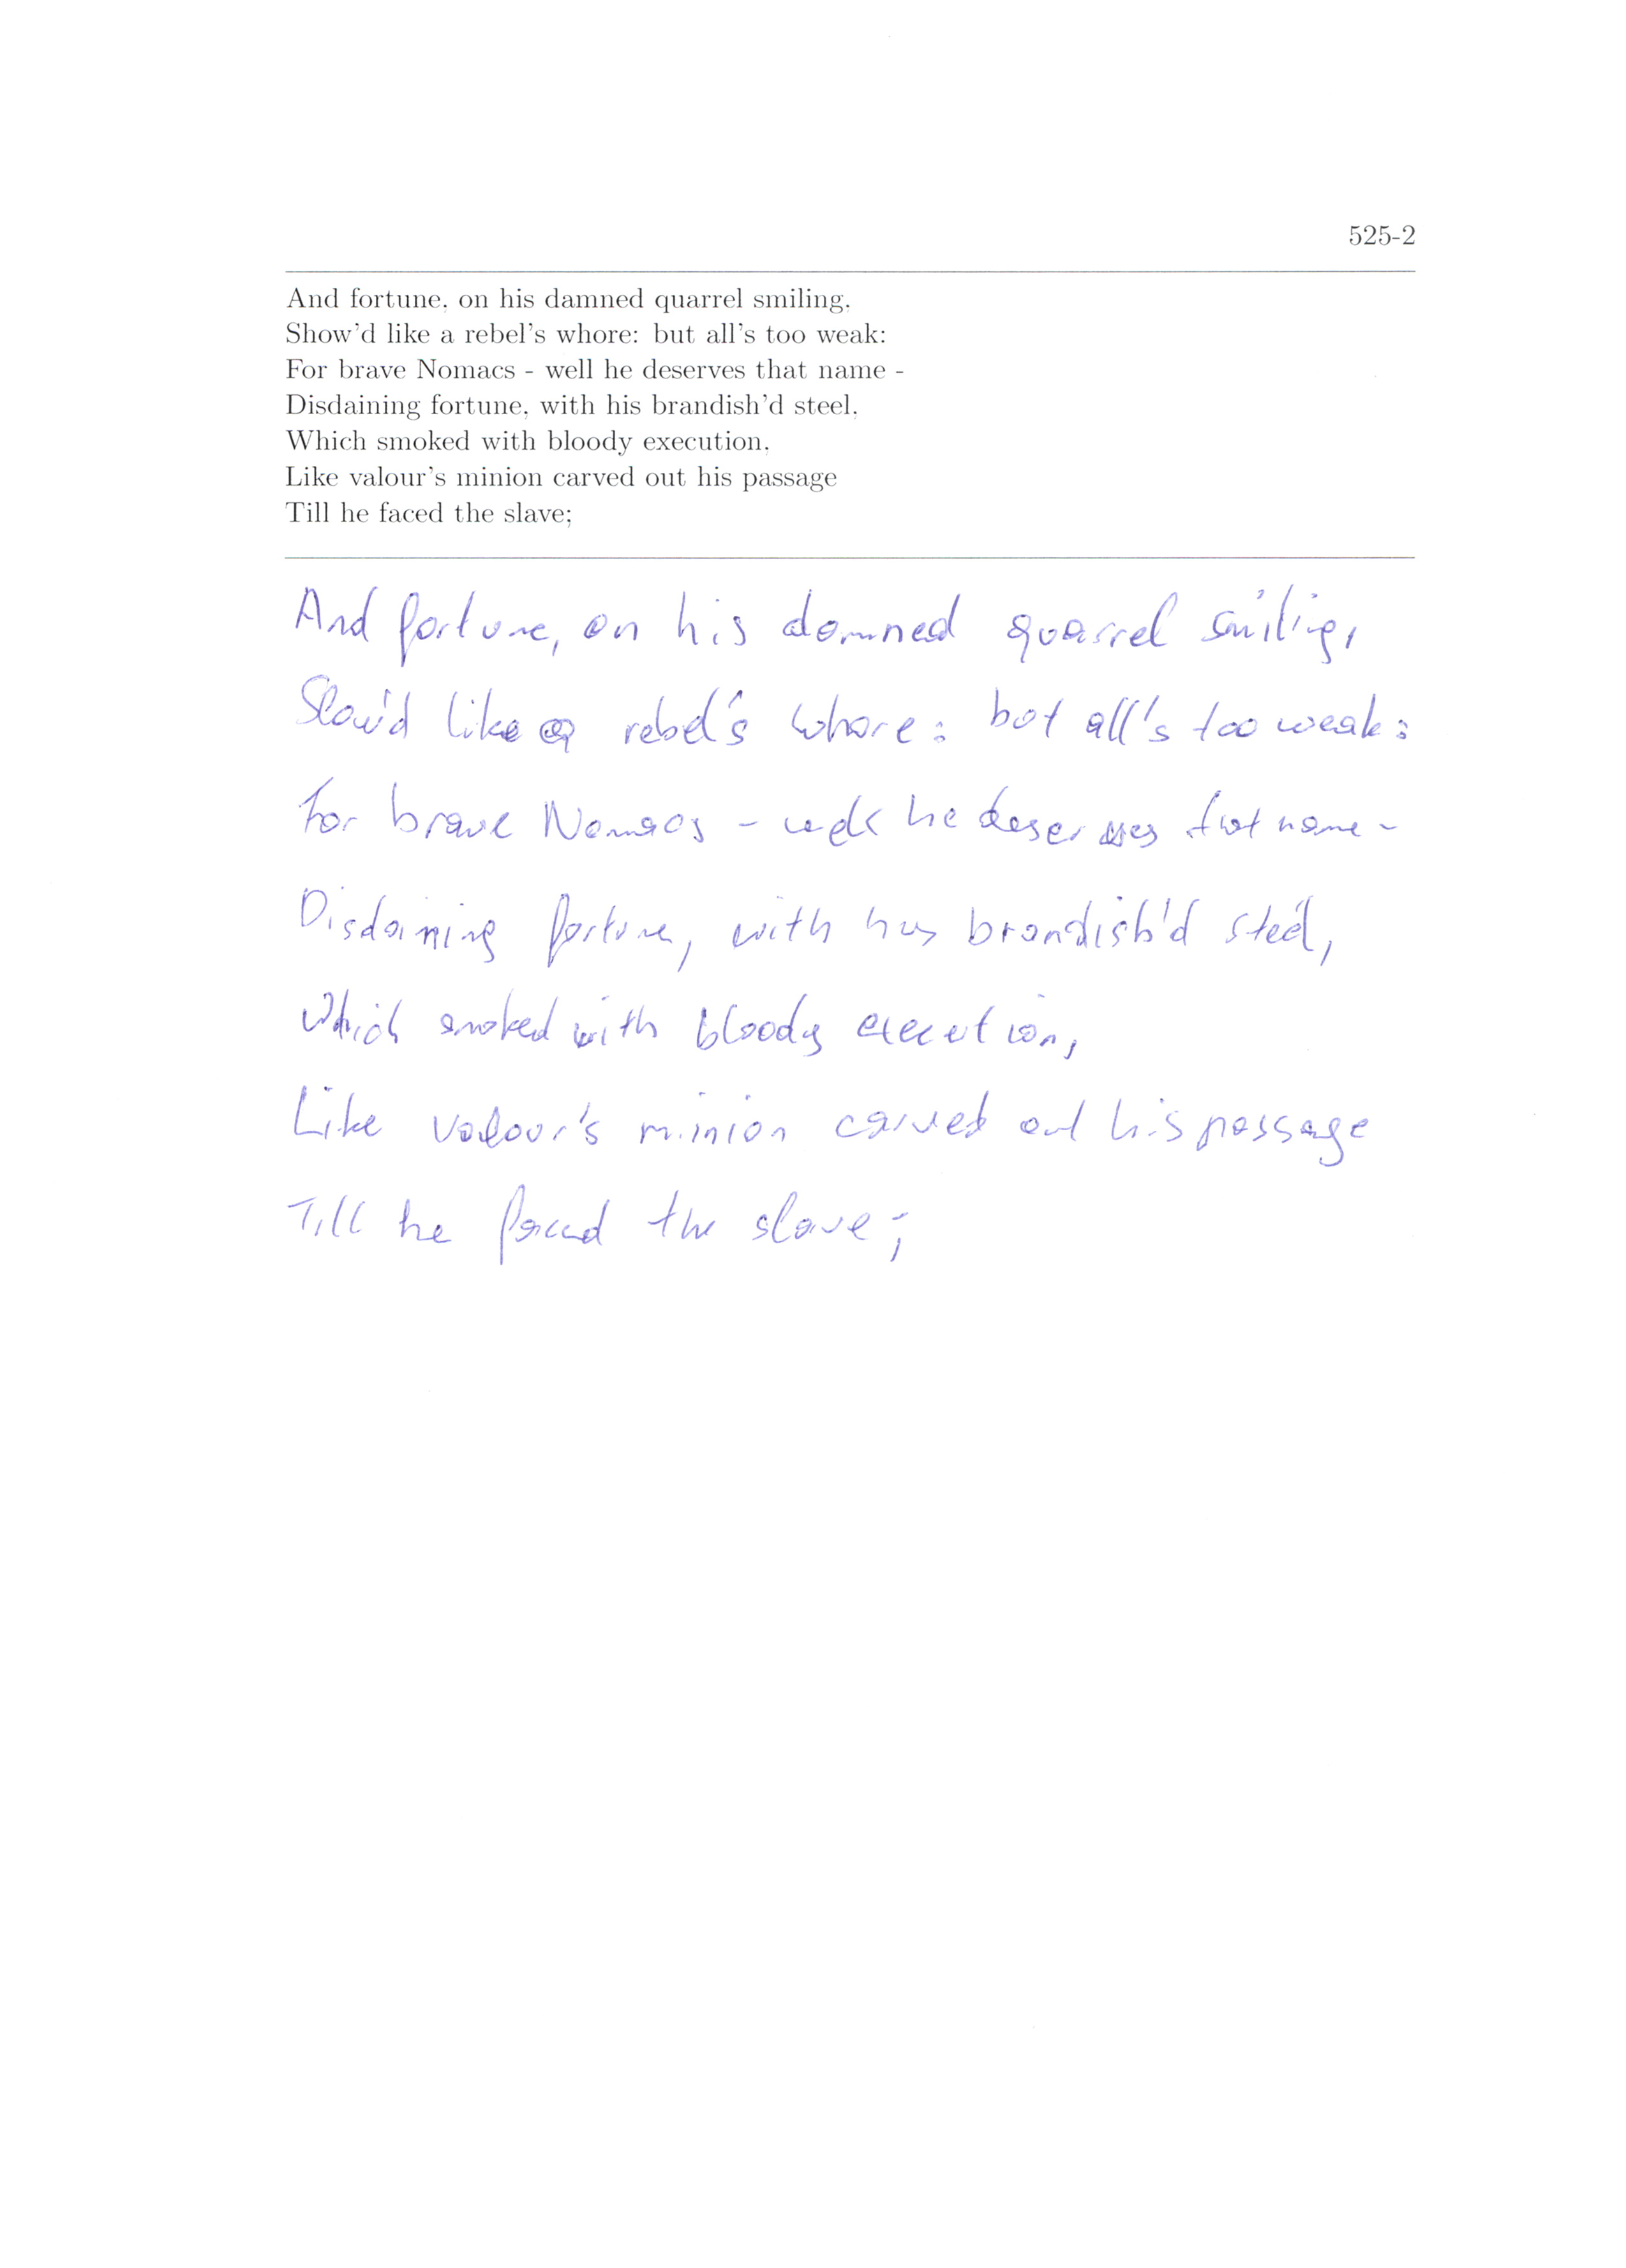 525-2
And fortune, on his damned quarrel smiling,
Show'd like a rebel's whore: but all's too weak:
For brave Nomacs - well he deserves that name -
Disdaining fortune, with his brandish'd steel,
Which smoked with bloody execution,
Like valour's minion carved out his passage
Till he faced the slave;
And fortune, on his damned quarrel smiling,
Show'd like a rebel's whore: but all's too weak:
For brave Nomacs - well he deserves that name -
Disdaining fortune, with his brandish'd steel,
Which smoked with bloody execution,
Like valour's minion carved out his passage
Till he faced the slave;